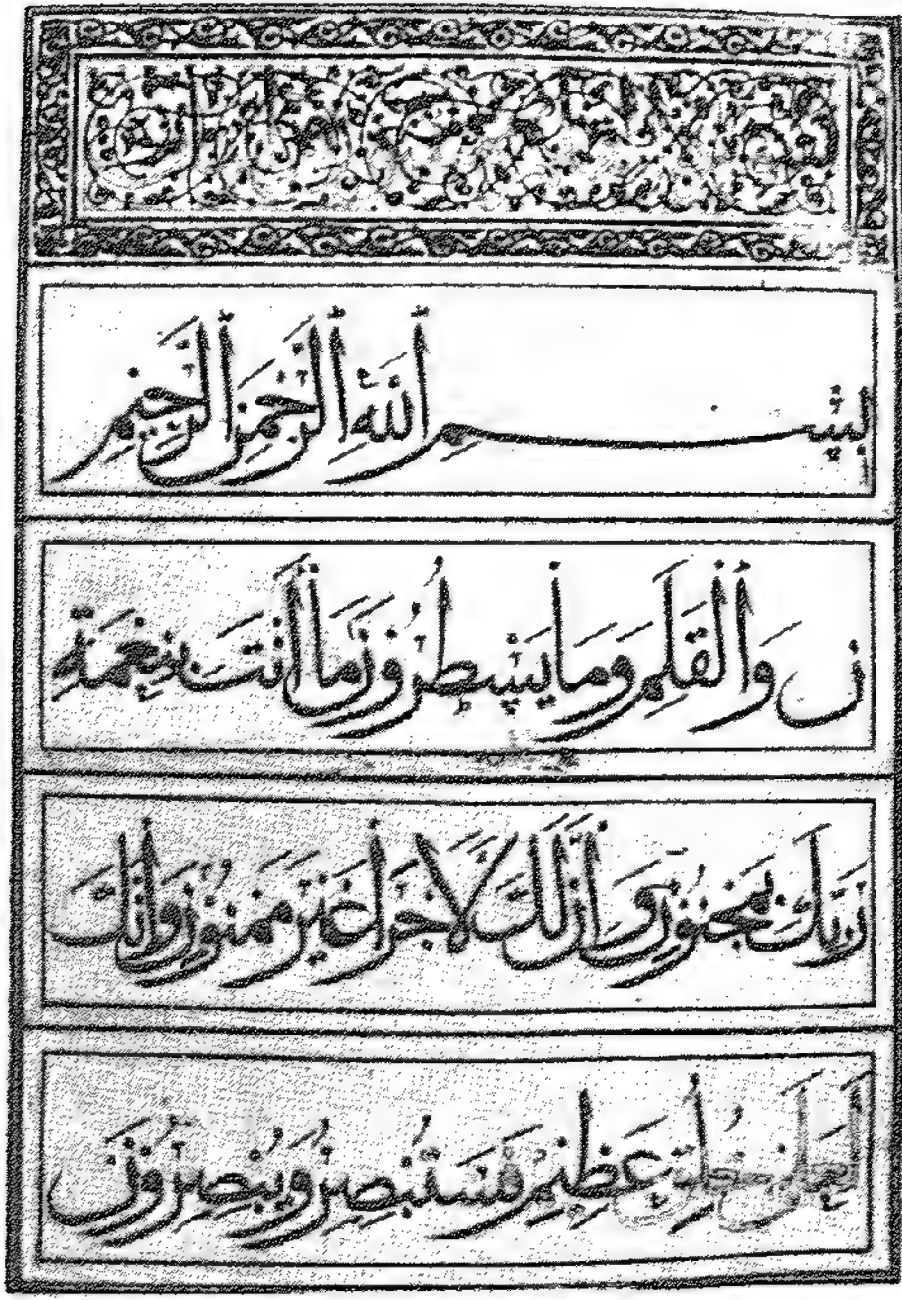 بِسْمِ ٱللَّهِ ٱلرَّحْمَٰنِ ٱلرَّحِيمِ
ن وَٱلْقَلَمِ وَمَا يَسْطُرُونَ مَا أَنتَ بِنِعْمَةِ
رَبِّكَ بِمَجْنُونٍ وَإِنَّ لَكَ لَأَجْرًا غَيْرَ مَمْنُونٍ وَإِنَّكَ
لَعَلَىٰ خُلُقٍ عَظِيمٍ فَسَتُبْصِرُ وَيُبْصِرُونَ